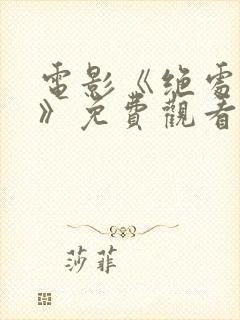 電影《绝處
》免費觀看
莎菲